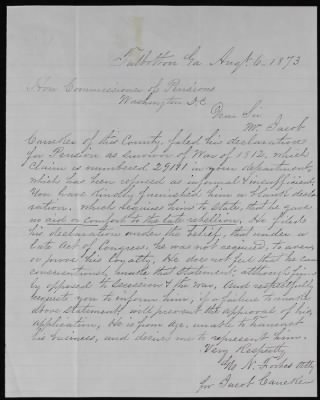 Talbotton Ga Augt. 6. 1873
Hon Commissioner of Pensions
Washington D.C
Dear Sir
Mr. Jacob
of this County, filed his declarations
for Pension as survivor of War of 1812, which
Claim is numbered in your department,
which has been refused as informal & insufficient.
You have kindly furnished him a blank decla-
ration, which requires him to state, that he gave
no aid or comfort to the late rebellion, He filed
his declaration under the belief, that under a
late Act of Congress, he was not required, to aver,
or prove his loyalty, He does not feel that he can
conscientiously make this statement; although
opposed to Secession & the War, And respectfully
requests you to inform him, if a failure to make
above statement, will prevent the approval of his
application, He is from age, unable to transact
his business, and desires me to represent him.
Very Respectfy
N. Forbes Atty
for Jacob